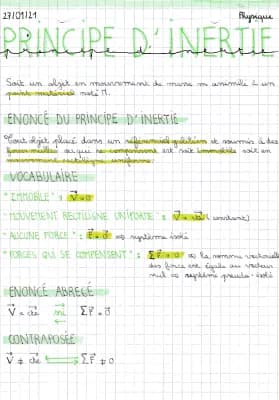 27/01/21 Physique
PRINCIPE D'INERTIE
principe d'inertie
Soit un objet en mouvement de masse m assimilé à un
point matériel noté M.
ENONCÉ DU PRINCIPE D'INERTIE
Tout objet placé dans un référentiel galiléen et soumis à des
forces nulles ou qui se compensent est soit immobile soit en
mouvement rectiligne uniforme.
VOCABULAIRE
"IMMOBILE" : V⃗ = 0⃗
"MOUVEMENT RECTILIGNE UNIFORME" : V⃗ = cte (constant)
"AUCUNE FORCE" : F⃗ = 0⃗ ⇔ système isolé
"FORCES QUI SE COMPENSENT" : ΣF⃗ = 0 ⇔ la somme vectorielle
des forces est égale au vecteur
nul ⇔ système pseudo-isolé
ENONCÉ ABRÉGÉ
V⃗ = cte si ΣF⃗ = 0⃗
CONTRAPOSÉE
V⃗ ≠ cte ⟺ ΣF⃗ ≠ 0